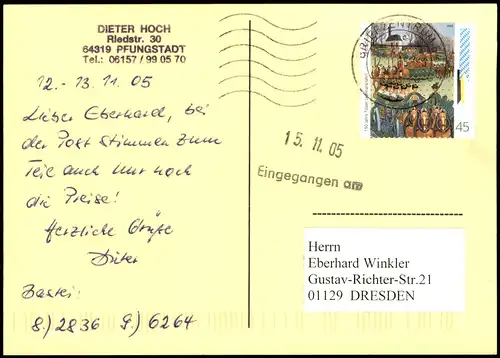 DIETER HOCH
Riedstr. 30
64319 PFUNGSTADT
Tel.: 06157 / 99 05 70
12. - 13. 11. 05
Lieber Eberhard, bei
der Post stimmen zum
Teil auch nur noch
die Preise!
Herzliche Grüße
Dieter
8.) 2836 9.) 6264
45
15. 11. 05
Eingegangen am
Herrn
Eberhard Winkler
Gustav-Richter-Str.21
01129 DRESDEN